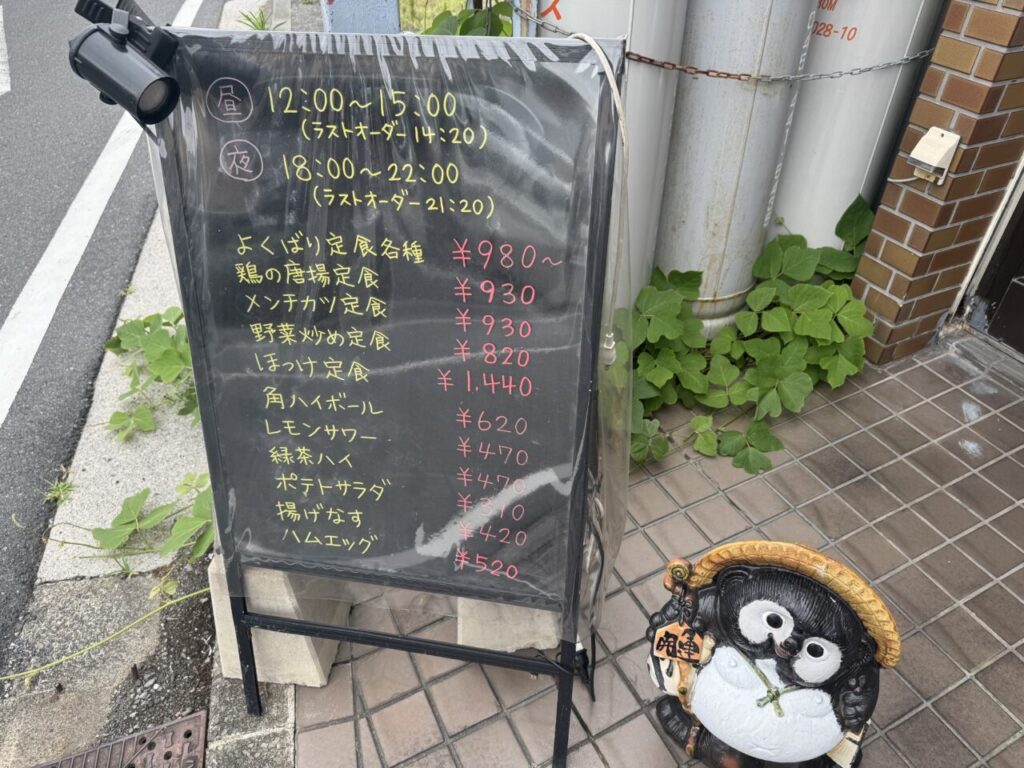 昼 12:00〜15:00
(ラストオーダー14:20)
夜 18:00〜22:00
(ラストオーダー21:20)
よくばり定食各種 ¥980〜
鶏の唐揚定食 ¥930
メンチカツ定食 ¥930
野菜炒め定食 ¥820
ほっけ定食 ¥1,440
角ハイボール ¥620
レモンサワー ¥470
緑茶ハイ ¥470
ポテトサラダ
揚げなす ¥420
ハムエッグ ¥520
ス
ROM
028-10